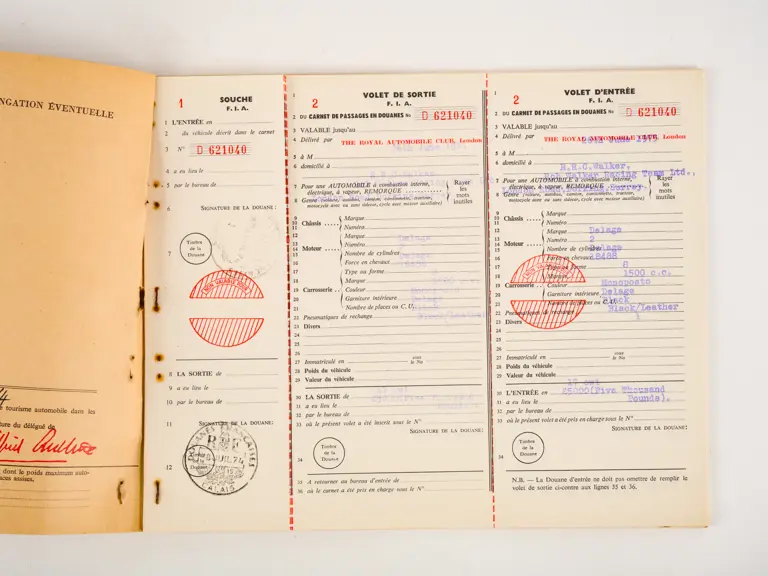 NGATION ÉVENTUELLE
4
e tourisme automobile dans les
ure du délégué de
dont le poids maximum auto-
aces assises,
1
SOUCHE
F. I. A.
1 L'ENTRÉE en
2 du véhicule décrit dans le carnet
3 N° D 621040
4 a eu lieu le
5 par le bureau de
6 SIGNATURE DE LA DOUANE:
7 Timbre de la Douane
NON VALABLE POUR
8 LA SORTIE de
9 a eu lieu le
10 par le bureau de
11 SIGNATURE DE LA DOUANE:
12
DOUANES FRANÇAISES
JUIL 74
CALAIS
1 VOLET DE SORTIE
2 F. I. A.
2 DU CARNET DE PASSAGES EN DOUANES No D 621040
3 VALABLE jusqu'au
4 Délivré par THE ROYAL AUTOMOBILE CLUB, London
5 à M
6 domicilié à
7 Pour une AUTOMOBILE à combustion interne, électrique, à vapeur, REMORQUE
8 Genre (voiture, autobus, camion, camionnette, tracteur, motocycle avec ou sans sidecar, cycle avec moteur auxiliaire)
Rayer les mots inutiles
9 Châssis Marque
10 Numéro
12 Moteur Marque
13 Numéro
Nombre de cylindres
Force en chevaux
17 Type ou forme
19 Carrosserie Couleur
Garniture intérieure
Nombre de places ou C. U.
22 Pneumatiques de rechange
23 Divers
24
25
26
27 Immatriculé en sous le No
28 Poids du véhicule
29 Valeur du véhicule
30 LA SORTIE de
31 a eu lieu le
32 par le bureau de
33 où le présent volet a été inscrit sous le N°
SIGNATURE DE LA DOUANE:
34 Timbre de la Douane
35 A retourner au bureau d'entrée de
36 où le carnet a été pris en charge sous le N°
1 VOLET D'ENTRÉE
2 F. I. A.
2 DU CARNET DE PASSAGES EN DOUANES No D 621040
3 VALABLE jusqu'au
4 Délivré par THE ROYAL AUTOMOBILE CLUB, London
5 à M
R.R.C.Walker,
6 domicilié à Rob Walker Racing Team Ltd.,
7 Pour une AUTOMOBILE à combustion interne, électrique, à vapeur, REMORQUE
8 Genre (voiture, autobus, camion, camionnette, tracteur, motocycle avec ou sans sidecar, cycle avec moteur auxiliaire)
Rayer les mots inutiles
9 Châssis Marque
10 Numéro
Delage
12 Moteur Marque
2
13 Numéro
Delage
Nombre de cylindres
Force en chevaux
8
17 Type ou forme
1500 c.c.
Monoposto
19 Carrosserie Couleur
Delage
Garniture intérieure
Black/Leather
Nombre de places ou C. U.
1
22 Pneumatiques de rechange
23 Divers
24
25
26
27 Immatriculé en sous le No
28 Poids du véhicule
29 Valeur du véhicule
17 cwt
30 L'ENTRÉE en £5000(Five Thousand
31 a eu lieu le Pounds).
32 par le bureau de
33 où le présent volet a été pris en charge sous le N°
SIGNATURE DE LA DOUANE:
34 Timbre de la Douane
N.B. — La Douane d'entrée ne doit pas omettre de remplir le
volet de sortie ci-contre aux lignes 35 et 36.